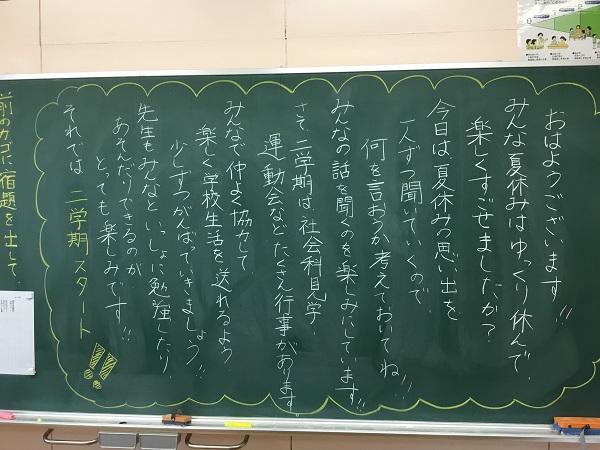 おはようございます!!
みんな夏休みはゆっくり休んで、
楽しくすごせましたか?
今日は、夏休みの思い出を
一人ずつ聞いていくので、
何を言おうか考えておいてね!!
みんなの話を聞くのを楽しみにしています!!
さて、二学期は、社会科見学
運動会などたくさん行事があります。
みんなで仲よく協力して
楽しく学校生活を送れるよう
少しずつがんばっていきましょう!!
先生もみんなといっしょに勉強したり
あそんだりできるのが
とっても楽しみです!!
それでは 二学期スタート!!
前のカゴに宿題を出して、